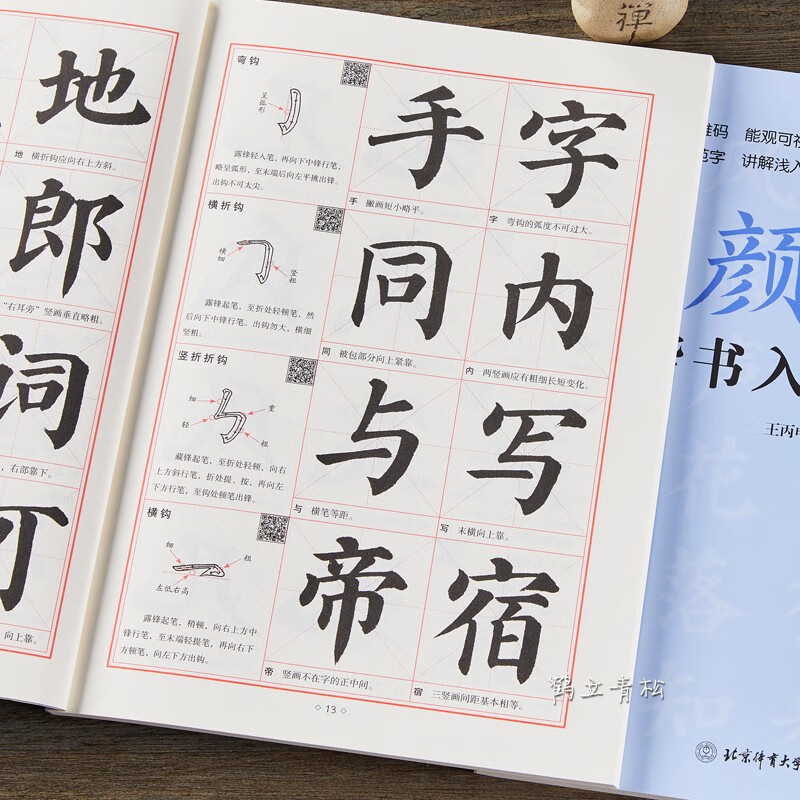 禅
地
地 横折钩应向右上方斜。
郎
“右耳旁”竖画垂直略粗。
词
，右部靠下。
可
向上靠。
弯钩
呈弧形
露锋轻入笔，再向下中锋行笔，
略呈弧形，至末端后向左平挑出锋。
出钩不可太尖。
手
手 撇画短小略平。
字
字 弯钩的弧度不可过大。
横折钩
横细
竖粗
露锋起笔，至折处轻顿笔，然
后向下中锋行笔。出钩勿大，横细
竖粗。
同
同 被包部分向上紧靠。
内
内 两竖画应有粗细长短变化。
竖折折钩
细
重
轻
粗
藏锋起笔，至折处轻顿，向右
上方斜行笔，折处提、按，再向左
下方行笔，至钩处顿笔出锋。
与
与 横笔等距。
写
写 末横向上靠。
横钩
细
粗
左低右高
露锋起笔，稍顿，向右上方中
锋行笔，至末端轻提笔，再向右下
方顿笔，向左下方出钩。
帝
帝 竖画不在字的正中间。
宿
宿 三竖画间距基本相等。
13
维码 能观可视
范字 讲解浅入
颜
楷书入
王丙申
花
落
和
北京体育大学
鹤立青松